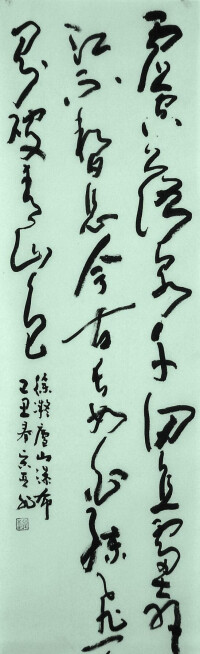 虛空落泉千仞直雷奔入
江不暫息今古長如白練飛一
條界破青山色
徐凝廬山瀑布
丑春